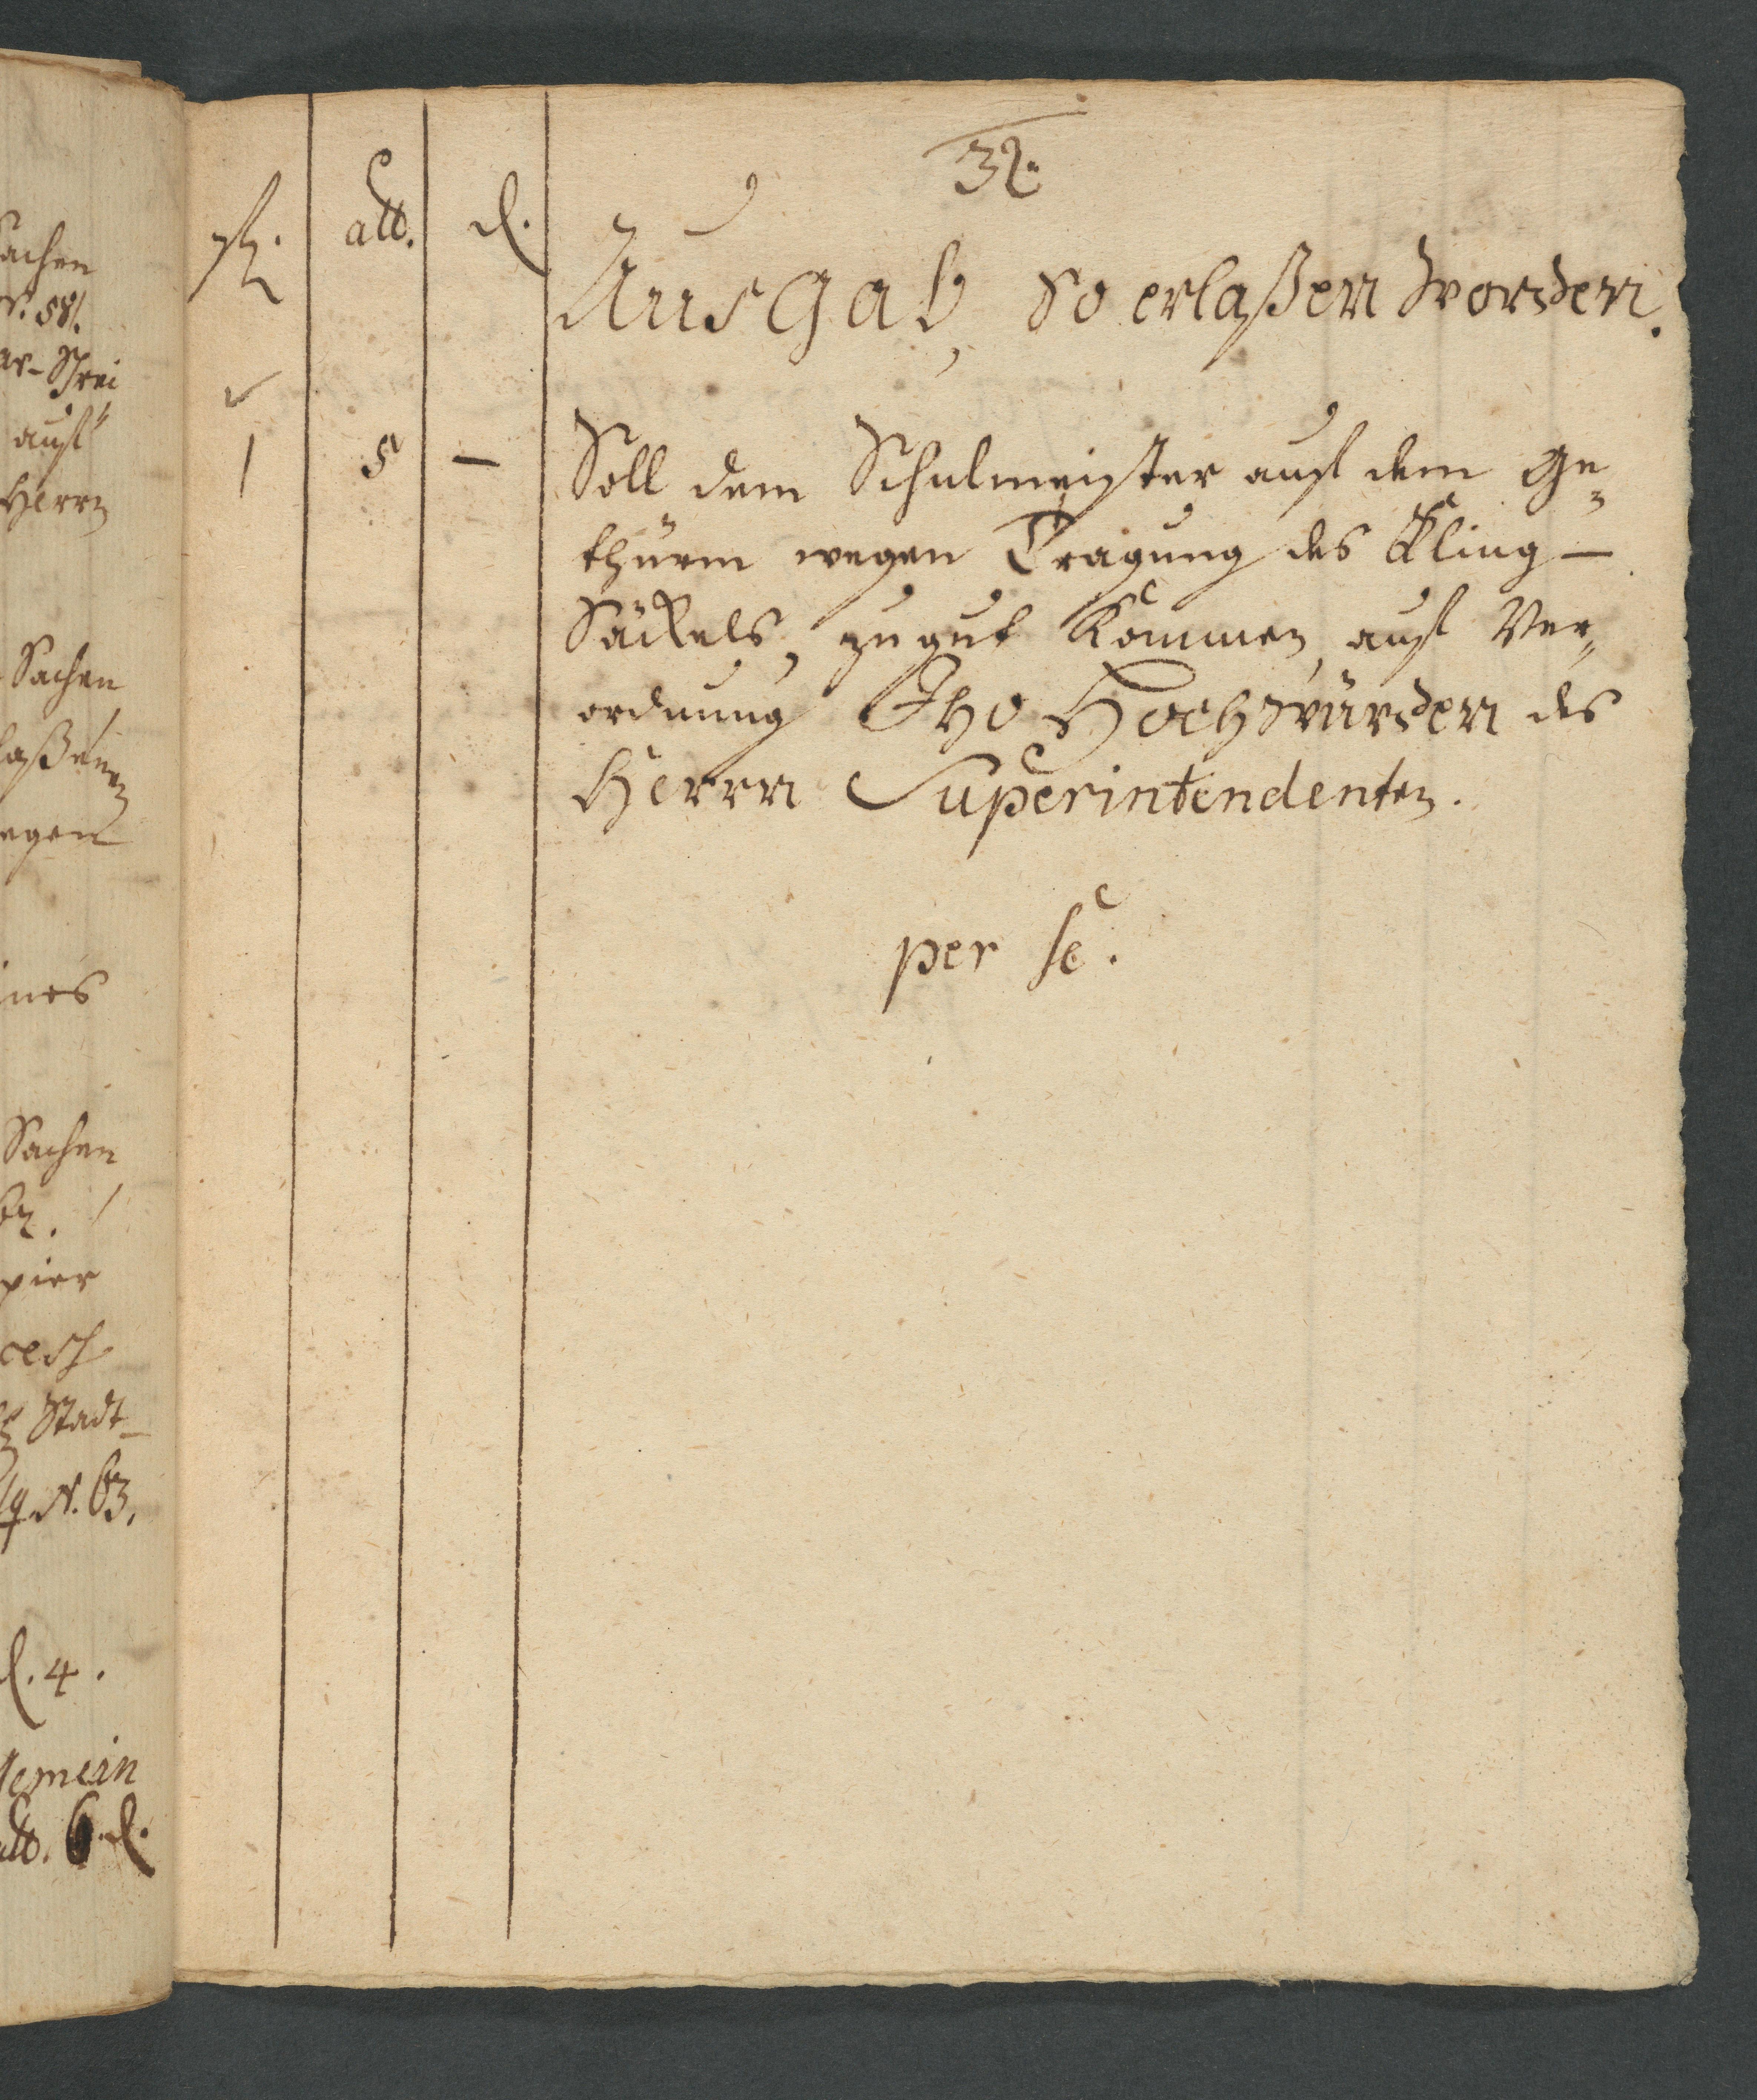 32.
rh. alb. d.
Ausgab, so erlaßen worden.
1 5 — Soll dem Schulmeister auß dem Ge-
thürm wegen Tragung des Kling-
Säckels, zu gut kommen, auß Ver-
ordnung Ihro Hochwürden des
Herrn Superintendenten.
per se.
achen
N. 58.
auß
Herrn
Sachen
laßenen
egen
ines
Sachen
pier
Stadt-
N. 63.
d. 4.
gemein
alb. 6 d.